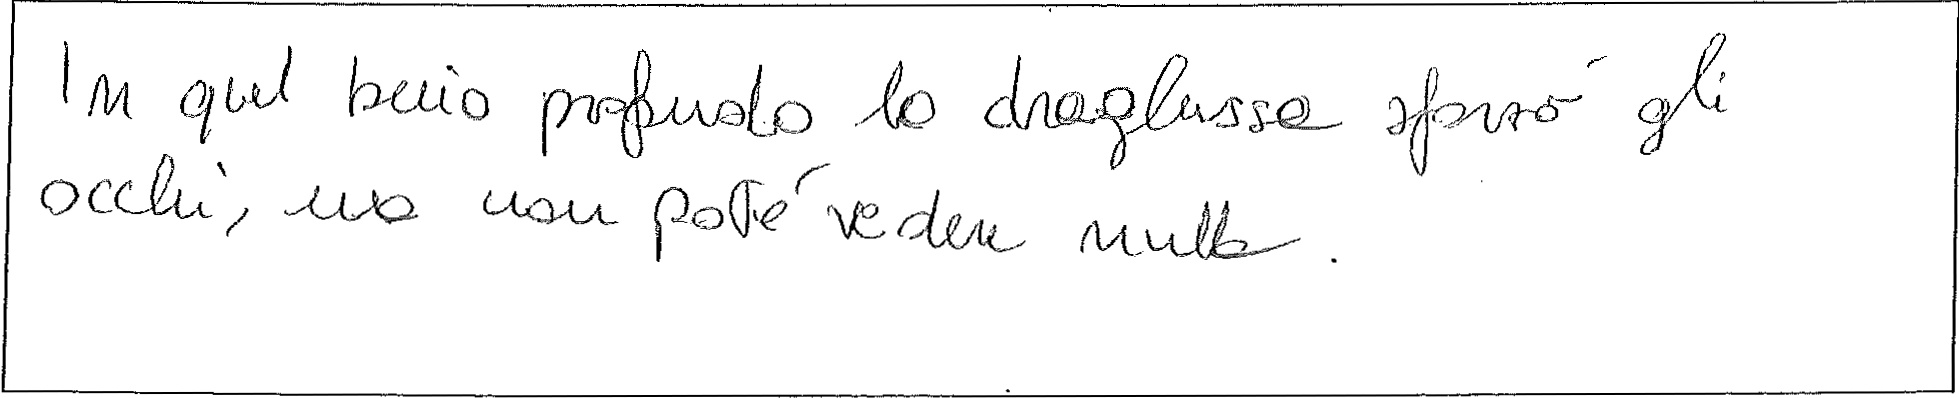 In quel buio profondo la draglusse sforzò gli
occhi, ma non poté vedere nulla.